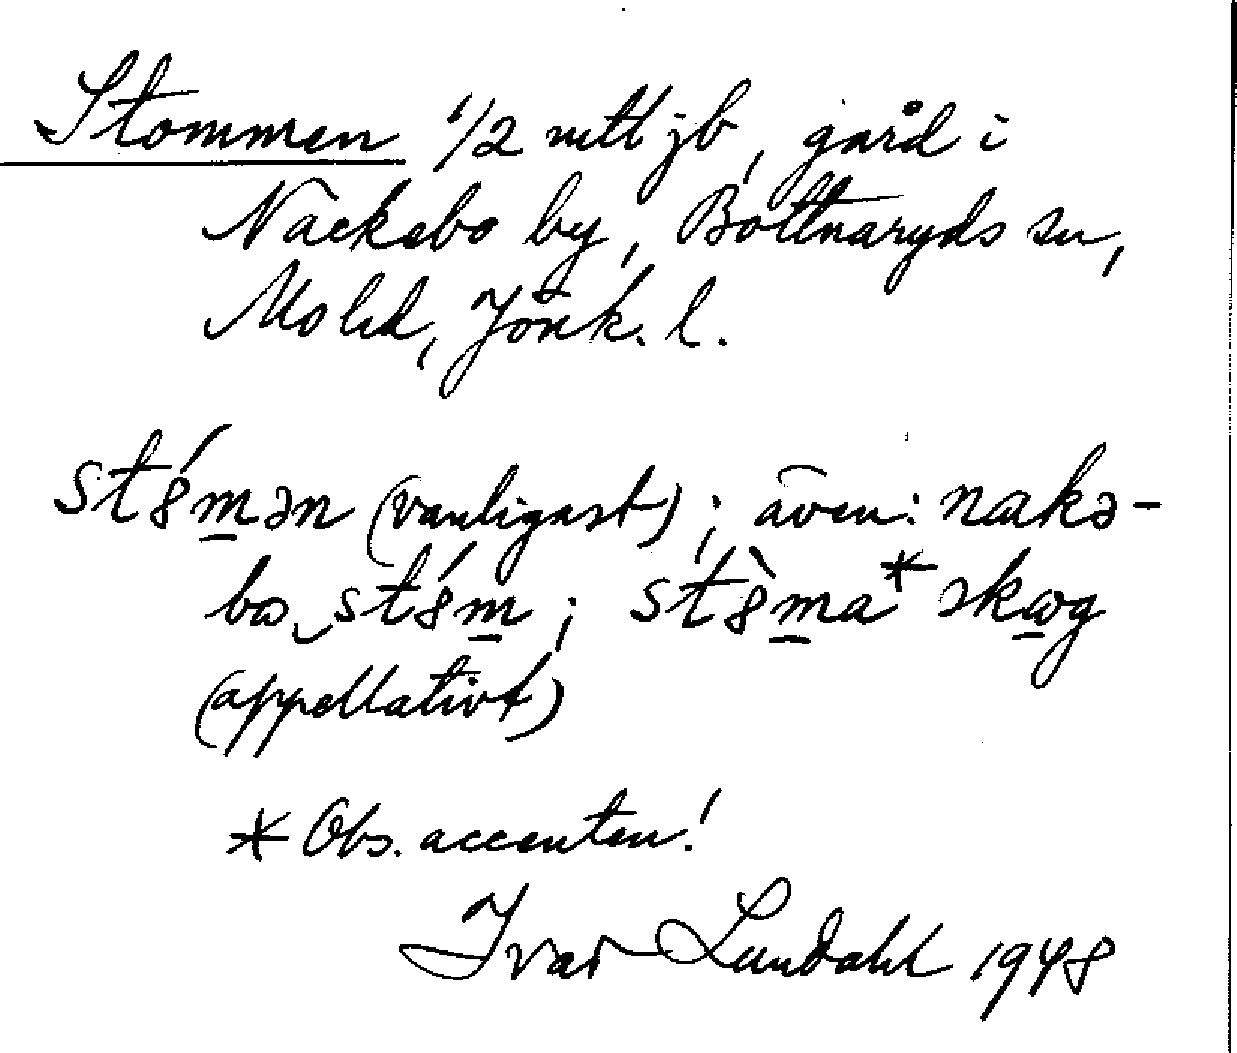 Stommen 1/2 mtl jb, gård i
Näckebo by, Bottnaryds sn,
Mo hd, Jönk. l.
st8́mən (vanligast); även: nækə-
bo stǿm; st8̀ma* skog
(appellativt)
* Obs. accenten!
Ivar Lundahl 1948